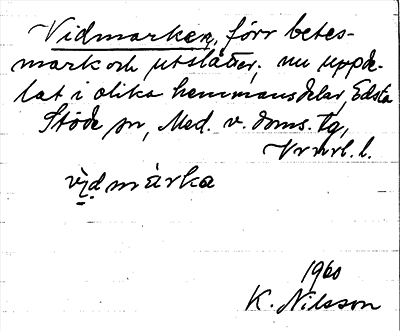 Vidmarken, förr betes-
mark och utslåtter; nu uppde-
lat i olika hemmansdelar, Edsta
Stöde sn, Med. v. doms. tg,
Vrnrl. l.
vi̤d màrka
1960
K. Nilsson